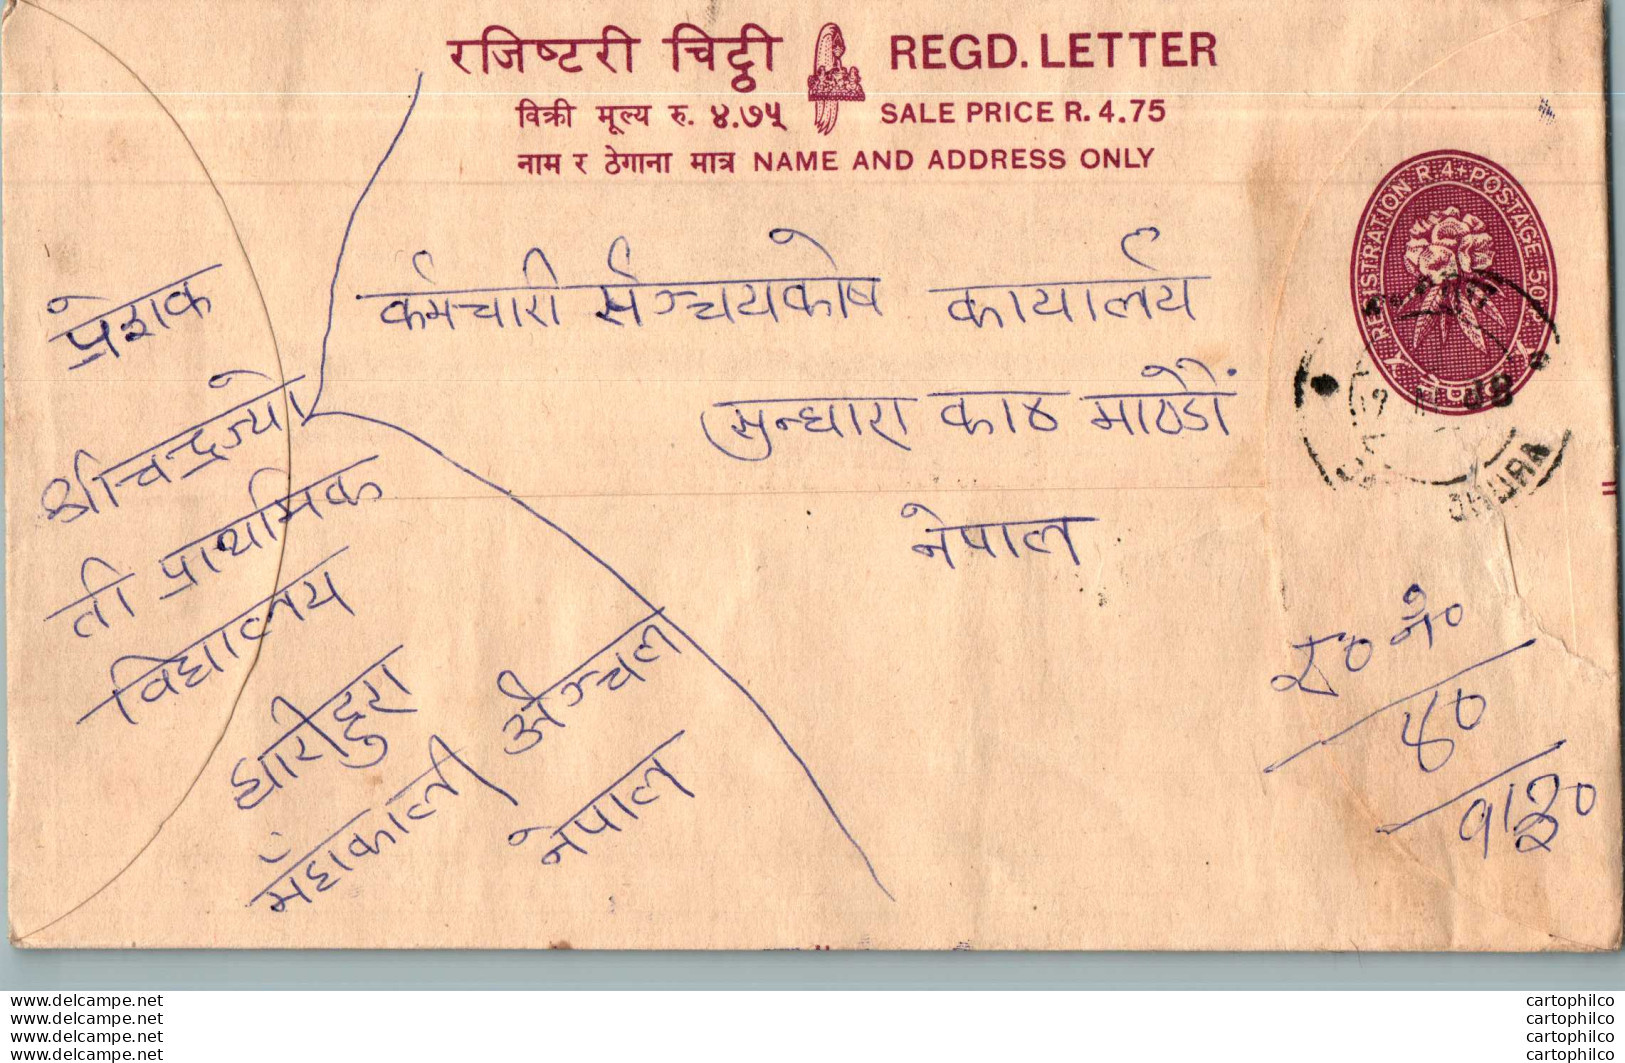 रजिष्टरी चिट्ठी REGD. LETTER
विक्री मूल्य रु. ४.७५ SALE PRICE R. 4.75
नाम र ठेगाना मात्र NAME AND ADDRESS ONLY
REGISTRATION R.4+POSTAGE 50
प्रेशक
श्रीचन्द्रज्यो
ती प्राथमिक
विद्यालय
धारीढुरा
मँहाकाली अँञ्चल
नेपाल
कर्मचारी संञ्चयकोष कार्यालय
सुन्धारा काठ माठडौं
नेपाल
र० नं०
४०
www.delcampe.net cartophilco
www.delcampe.net cartophilco
www.delcampe.net cartophilco
www.delcampe.net cartophilco